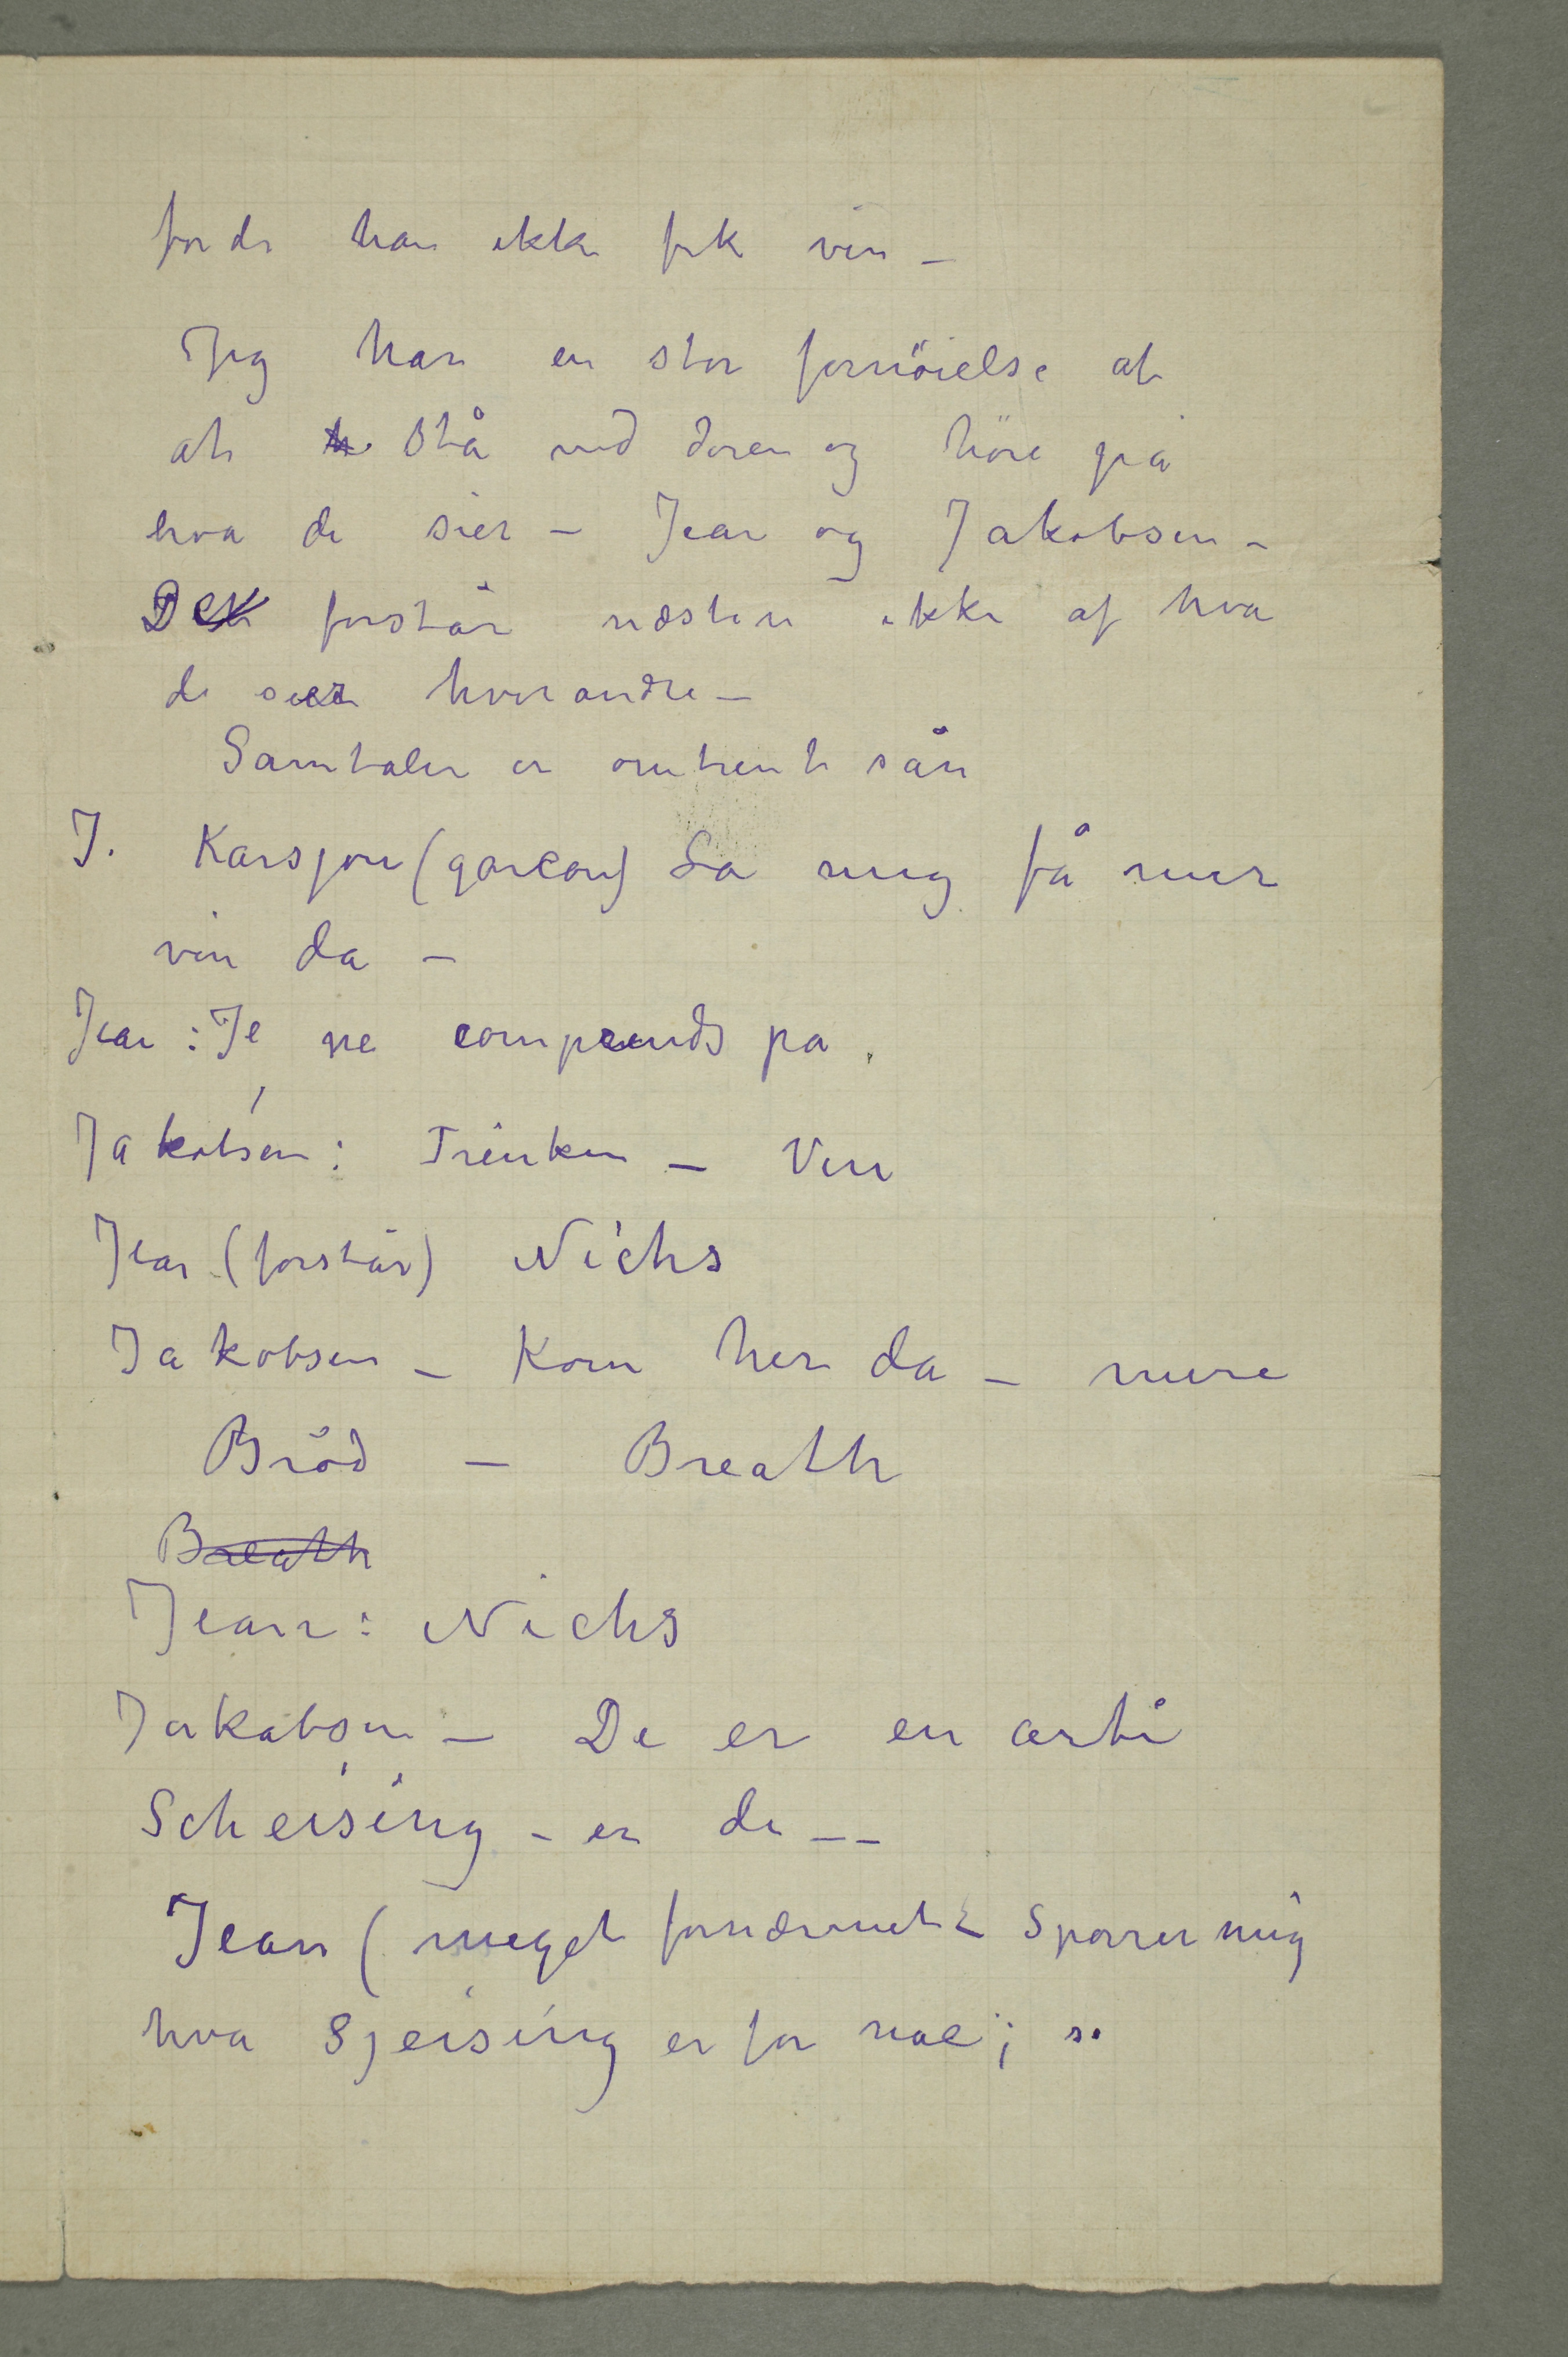 fordi han ikke fik vin –
Jeg har en stor fornöielse af
at stå ved doren og höre på
hva de sier – Jean og Jakobsen –
De forstår næsten ikke af hva
de sier hverandre –
Samtalen er omtrent sån
J. Karsjon (garcon) La mig få mer
vin da –
Jean: Je ne comprends pa.
Jakobsen: Trinken – Vin
Jean (forstår) Nichs
Jakobsen – Kom her da – mere
Bröd – Breath
Breath
Jean: Nichs
Jakobsen – De er en arti
Scheising – er de – –
Jean (meget fornærmet – Sporrer mig
hva Sjeising er for noe; so